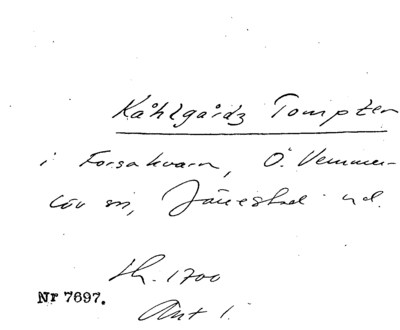 Kåhlgårdz Tompten
i Forsakvarn, Ö. Vemmer-
löv sn, Järrestad hd.
Lh. 1700
Nr 7697.
Ant 1.